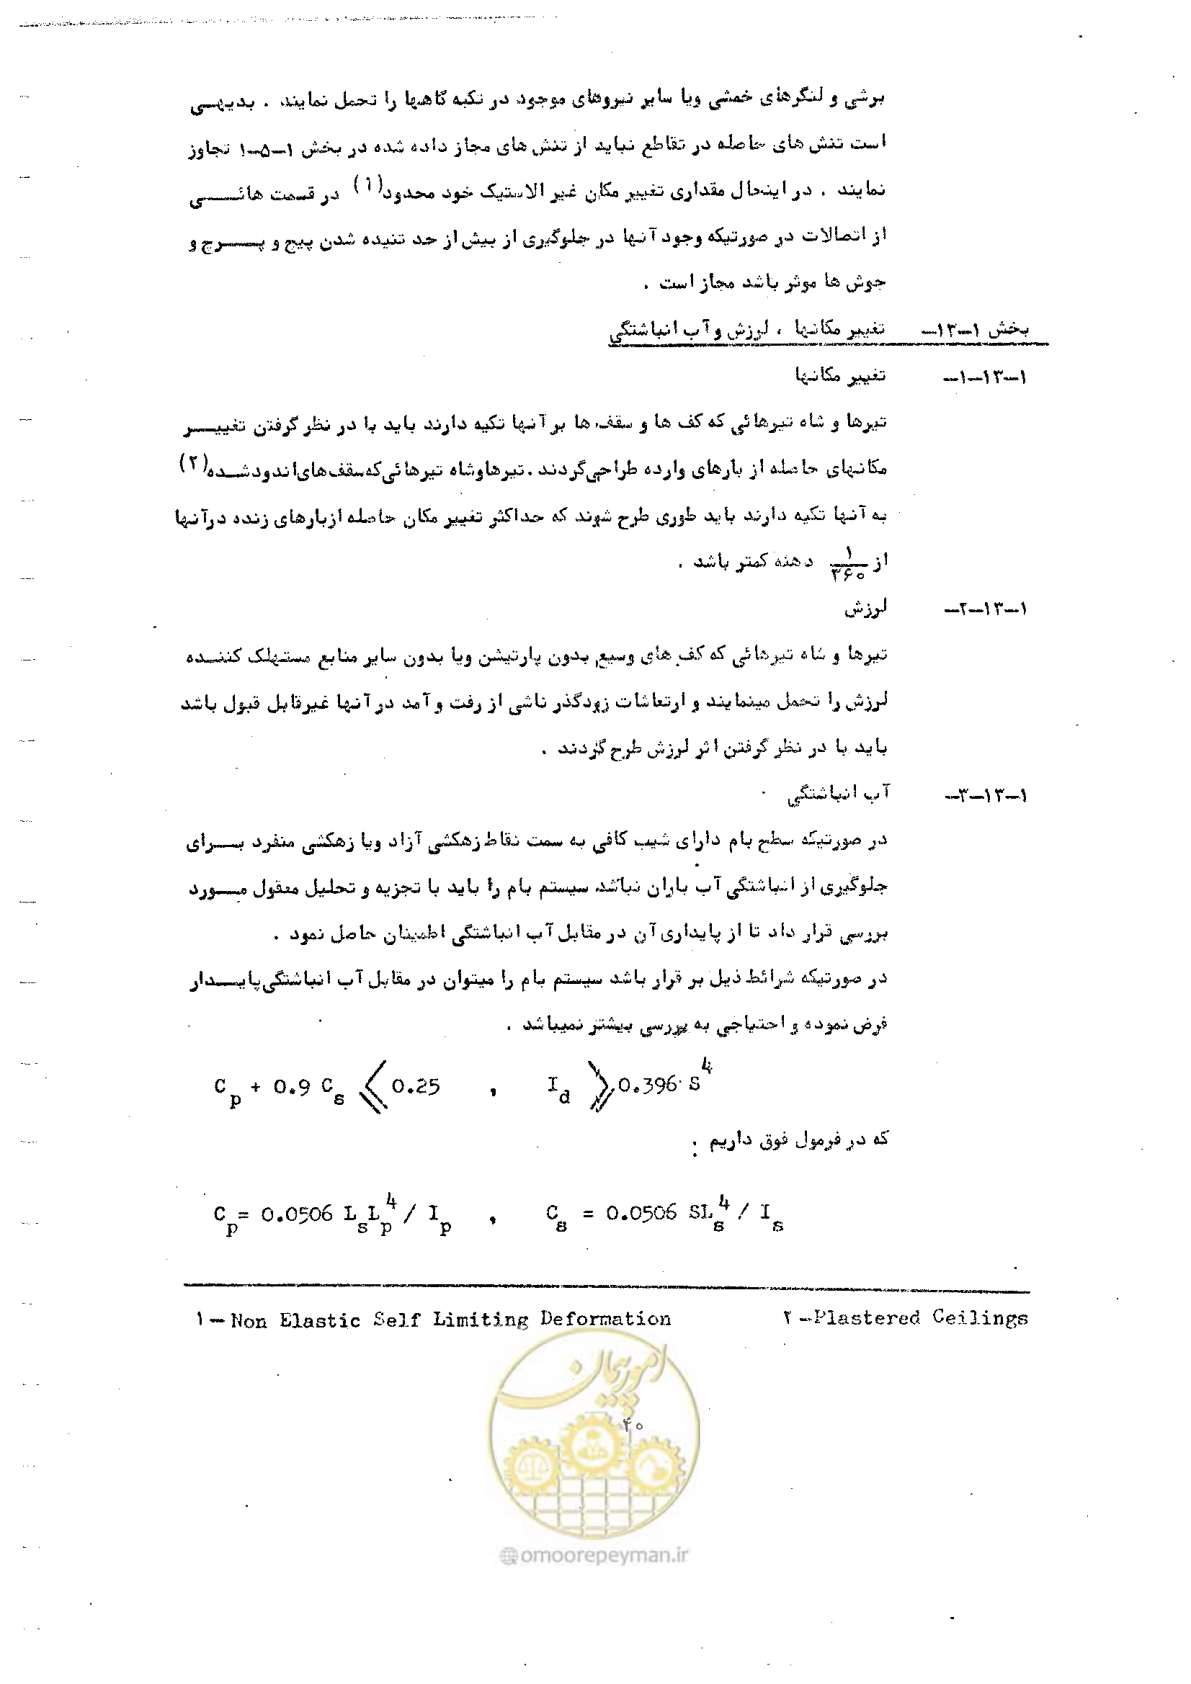 برشی و لنگرهای خمشی ویا سایر نیروهای موجود در تکیه گاهها را تحمل نمایند . بدیهی
است تنش های حاصله در تقاطع نباید از تنش های مجاز داده شده در بخش ۱-۵-۱ تجاوز
نمایند . در اینحال مقداری تغییر مکان غیر الاستیک خود محدود(۱) در قسمت هائی
از اتصالات در صورتیکه وجود آنها در جلوگیری از بیش از حد تنیده شدن پیچ و پرچ و
جوش ها موثر باشد مجاز است .
بخش ۱-۱۳- تغییر مکانها ، لرزش و آب انباشتگی
۱-۱۳-۱- تغییر مکانها
تیرها و شاه تیرهائی که کف ها و سقف ها بر آنها تکیه دارند باید با در نظر گرفتن تغییر
مکانهای حاصله از بارهای وارده طراحی گردند . تیرها وشاه تیرهائی که سقف های اندود شده(۲)
به آنها تکیه دارند باید طوری طرح شوند که حداکثر تغییر مکان حاصله ازبارهای زنده درآنها
از ۱/۳۶۰ دهنه کمتر باشد .
۱-۱۳-۲- لرزش
تیرها و شاه تیرهائی که کف های وسیع بدون پارتیشن ویا بدون سایر منابع مستهلک کننده
لرزش را تحمل مینمایند و ارتعاشات زودگذر ناشی از رفت و آمد در آنها غیرقابل قبول باشد
باید با در نظر گرفتن اثر لرزش طرح گردند .
۱-۱۳-۳- آب انباشتگی
در صورتیکه سطح بام دارای شیب کافی به سمت نقاط زهکشی آزاد ویا زهکشی منفرد برای
جلوگیری از انباشتگی آب باران نباشد سیستم بام را باید با تجزیه و تحلیل معقول مورد
بررسی قرار داد تا از پایداری آن در مقابل آب انباشتگی اطمینان حاصل نمود .
در صورتیکه شرائط ذیل بر قرار باشد سیستم بام را میتوان در مقابل آب انباشتگی پایدار
فرض نموده و احتیاجی به بررسی بیشتر نمیباشد .
C_p + 0.9 C_s ⩽ 0.25 , I_d ⩾ 0.396 S^4
که در فرمول فوق داریم :
C_p = 0.0506 L_s L_p^4 / I_p , C_s = 0.0506 SL_s^4 / I_s
۱-Non Elastic Self Limiting Deformation ۲-Plastered Ceilings
امور پیمان
۴۰
@omoorepeyman.ir